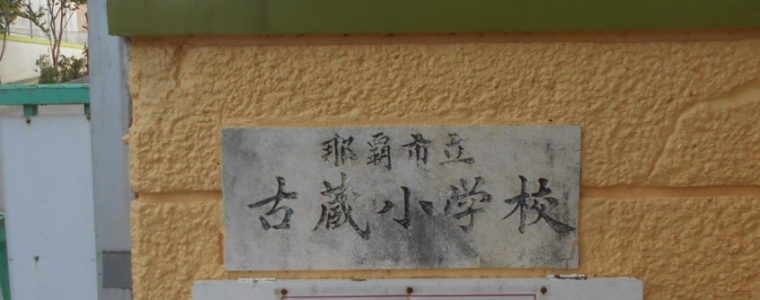 那覇市立
古蔵小学校